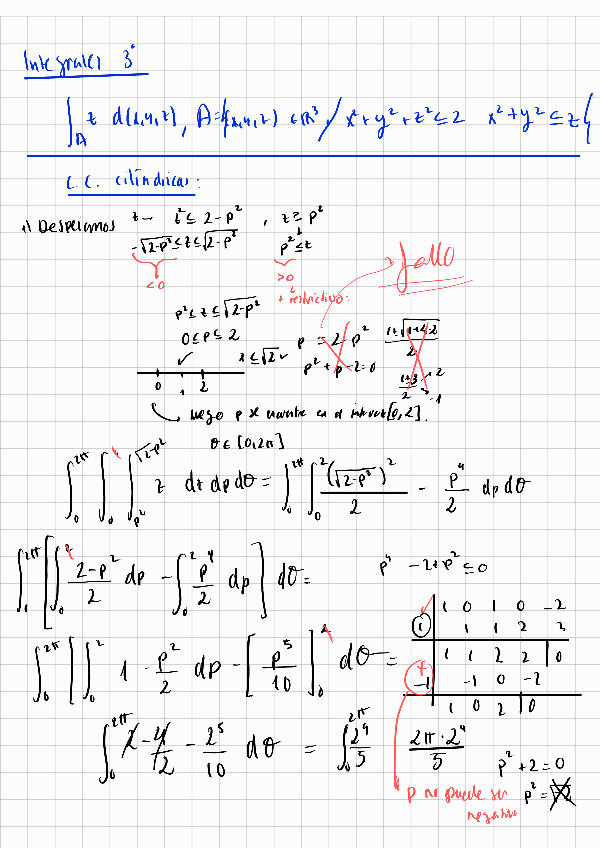 Integrales 3ª
∫_A z d(x,y,z), A={(x,y,z) ∈ℝ³ / x²+y²+z² ≤ 2 x²+y² ≤ z}
C.C. cilíndricas:
1) Despejamos z → z² ≤ 2-ρ² , z ≥ ρ²
-√(2-ρ²) ≤ z ≤ √(2-ρ²) ρ² ≤ z
<0 >0
+ restrictivo:
fallo
ρ² ≤ z ≤ √(2-ρ²)
0 ≤ ρ ≤ 2
ρ = 2-ρ²
ρ²+ρ-2=0
1 ≤ √2 ✓
0 1 2
luego ρ se encuentra en el intervalo [0,2].
θ ∈ [0,2π]
∫_0^{2π} ∫_0 ∫_{ρ²}^{√(2-ρ²)} z dz dρ dθ = ∫_0^{2π} ∫_0^2 (√(2-ρ²))²/2 - ρ⁴/2 dρ dθ
∫^{2π} [∫_0^2 (2-ρ²)/2 dρ - ∫_0^2 ρ⁴/2 dρ] dθ =
ρ⁴ -2+ρ² ≤ 0
∫_0^{2π} [∫_0^2 1 - ρ²/2 dρ - [ρ⁵/10]_0 dθ =
1 0 1 0 -2
1 1 1 2 2
1 1 2 2 0
-1 -1 0 -2
1 0 2 0
∫_0^{2π} 2 - 4/2 - 2⁵/10 dθ = ∫_0^{2π} 2⁴/5 2π·2⁴/5
ρ²+2=0
ρ no puede ser ρ² =
negativo